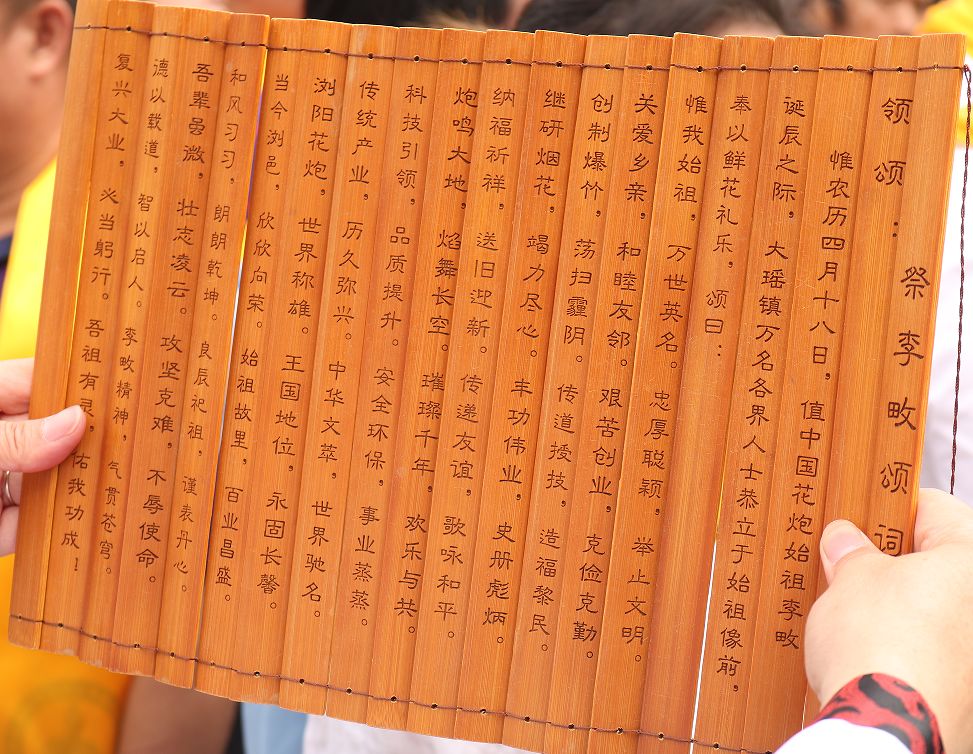 领颂：祭李畋颂词
惟农历四月十八日，值中国花炮始祖李畋
诞辰之际，大瑶镇万名各界人士恭立于始祖像前，
奉以鲜花礼乐，颂曰：
惟我始祖，万世英名。忠厚聪颖，举止文明。
关爱乡亲，和睦友邻。艰苦创业，克俭克勤。
创制爆竹，荡扫霾阴。传道授技，造福黎民。
继研烟花，竭力尽心。丰功伟业，史册彪炳。
纳福祈祥，送旧迎新。传递友谊，歌咏和平。
炮鸣大地，焰舞长空。璀璨千年，欢乐与共。
科技引领，品质提升。安全环保，事业蒸蒸。
传统产业，历久弥兴。中华文萃，世界驰名。
浏阳花炮，世界称雄。王国地位，永固长馨。
当今浏邑，欣欣向荣。始祖故里，百业昌盛。
和风习习，朗朗乾坤。良辰祀祖，谨表丹心。
吾辈虽微，壮志凌云。攻坚克难，不辱使命。
德以载道，智以启人。李畋精神，气贯苍穹。
复兴大业，必当躬行。吾祖有灵，佑我功成！